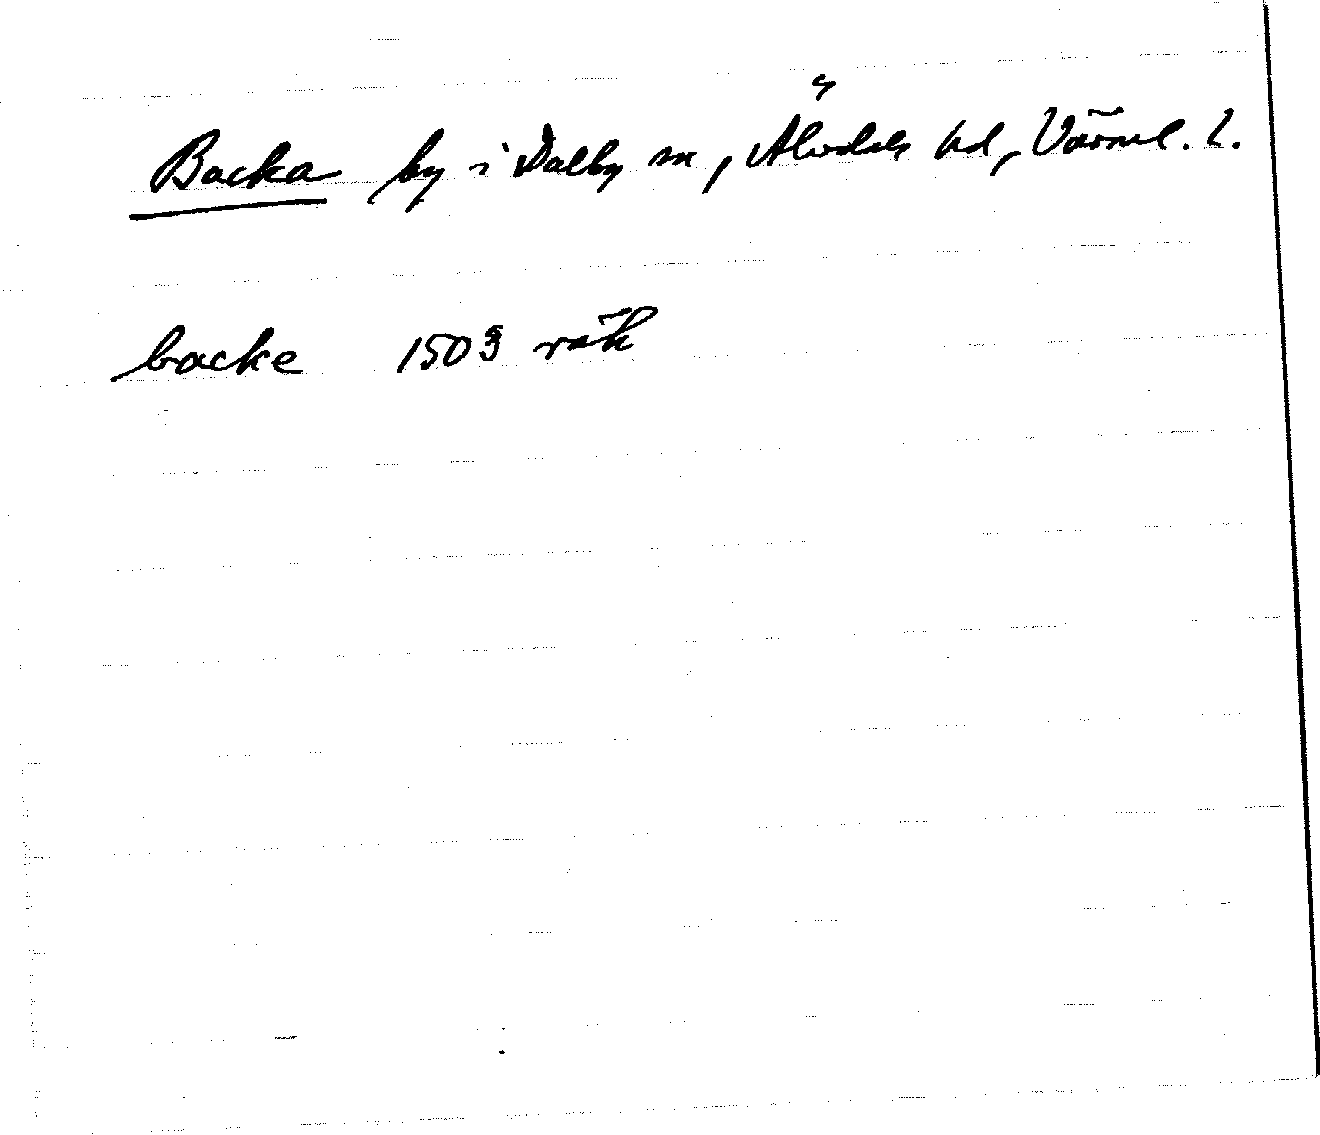 Backa by i Dalby sn, Älvdals hd, Värml. l.
backe 1503 räk